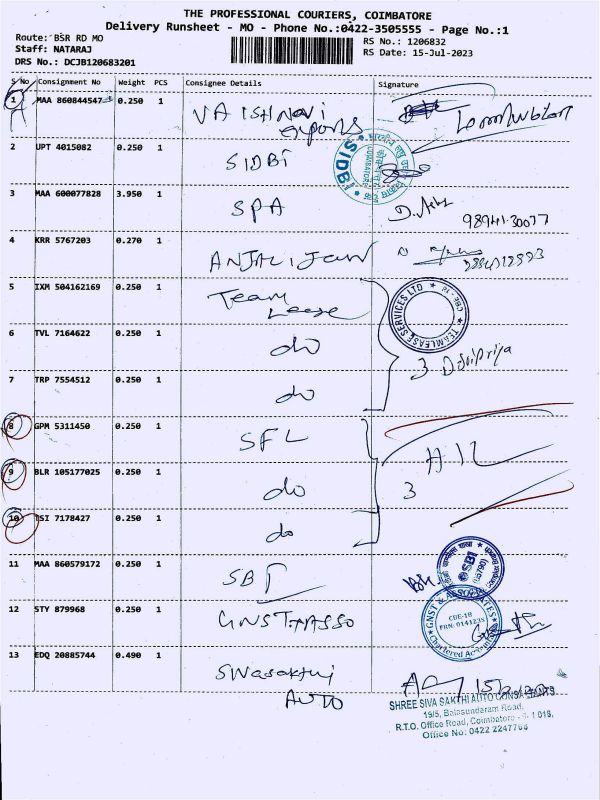 THE PROFESSIONAL COURIERS, COIMBATORE
Delivery Runsheet - MO - Phone No.:0422-3505555 - Page No.:1
Route: BSR RD MO
Staff: NATARAJ
DRS No.: DCJB120683201
RS No.: 1206832
RS Date: 15-Jul-2023
S No Consignment No Weight PCS Consignee Details Signature
1 MAA 860844547 0.250 1 VAISHNAVI exports
2 UPT 4015082 0.250 1 SIDBI
SIDBI
COIMBATORE
3 MAA 600077828 3.950 1 SPA 98941 30077
4 KRR 5767203 0.270 1 ANJALI
5 IXM 504162169 0.250 1 Team Lease
TEAMLEASE SERVICES LTD ★ CBE - 18 ★
6 TVL 7164622 0.250 1 do
3 D Sripriya
7 TRP 7554512 0.250 1 do
8 GPM 5311450 0.250 1 SFL
9 BLR 105177025 0.250 1 do
3
10 TSI 7178427 0.250 1 do
11 MAA 860579172 0.250 1 SBI
SBI
12 STY 879968 0.250 1 GNST ASSO
GNST & ASSOCIATES
CBE-18
FRN: 014123S
Chartered Accountants
13 EDQ 20885744 0.490 1 Swasakthi
AUTO
SHREE SIVA SAKTHI AUTO CONSULTANTS
19/5, Balasundaram Road,
R.T.O. Office Road, Coimbatore - 641 018.
Office No: 0422 2247766